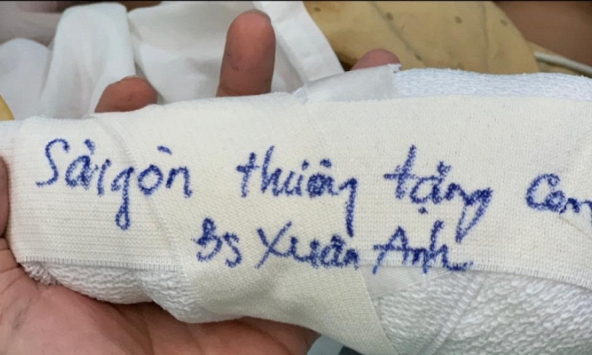 Sài gòn thương tặng con
BS Xuân Anh